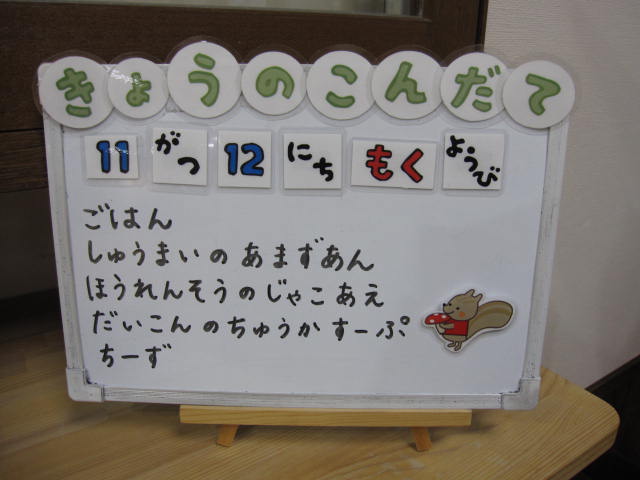 きょうのこんだて
11 がつ 12 にち もく ようび
ごはん
しゅうまいのあまずあん
ほうれんそうのじゃこあえ
だいこんのちゅうかすーぷ
ちーず